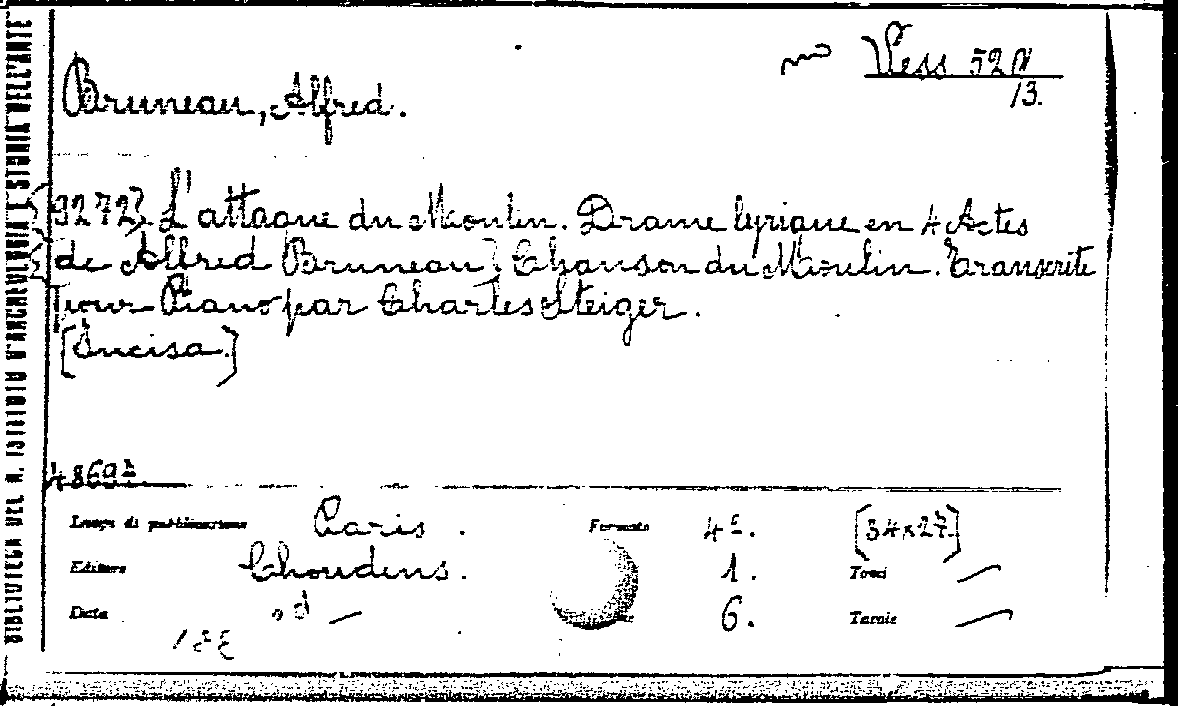 BIBLIOTECA DEL R. ISTITUTO D'ARCHEOLOGIA E STORIA DELL'ARTE
mo Vess 52 N
13.
Bruneau, Alfred.
[9272]. L'attaque du Moulin. Drame lyrique en 4 Actes
de Alfred Bruneau] Chanson du Moulin. Transcrite
pour Piano par Charles Steiger.
[Incisa.]
Luogo di pubblicazione Paris. Formato 4º. [34x27]
Editore Choudens. 1. Tomi —
Data s d — 6. Tavole —